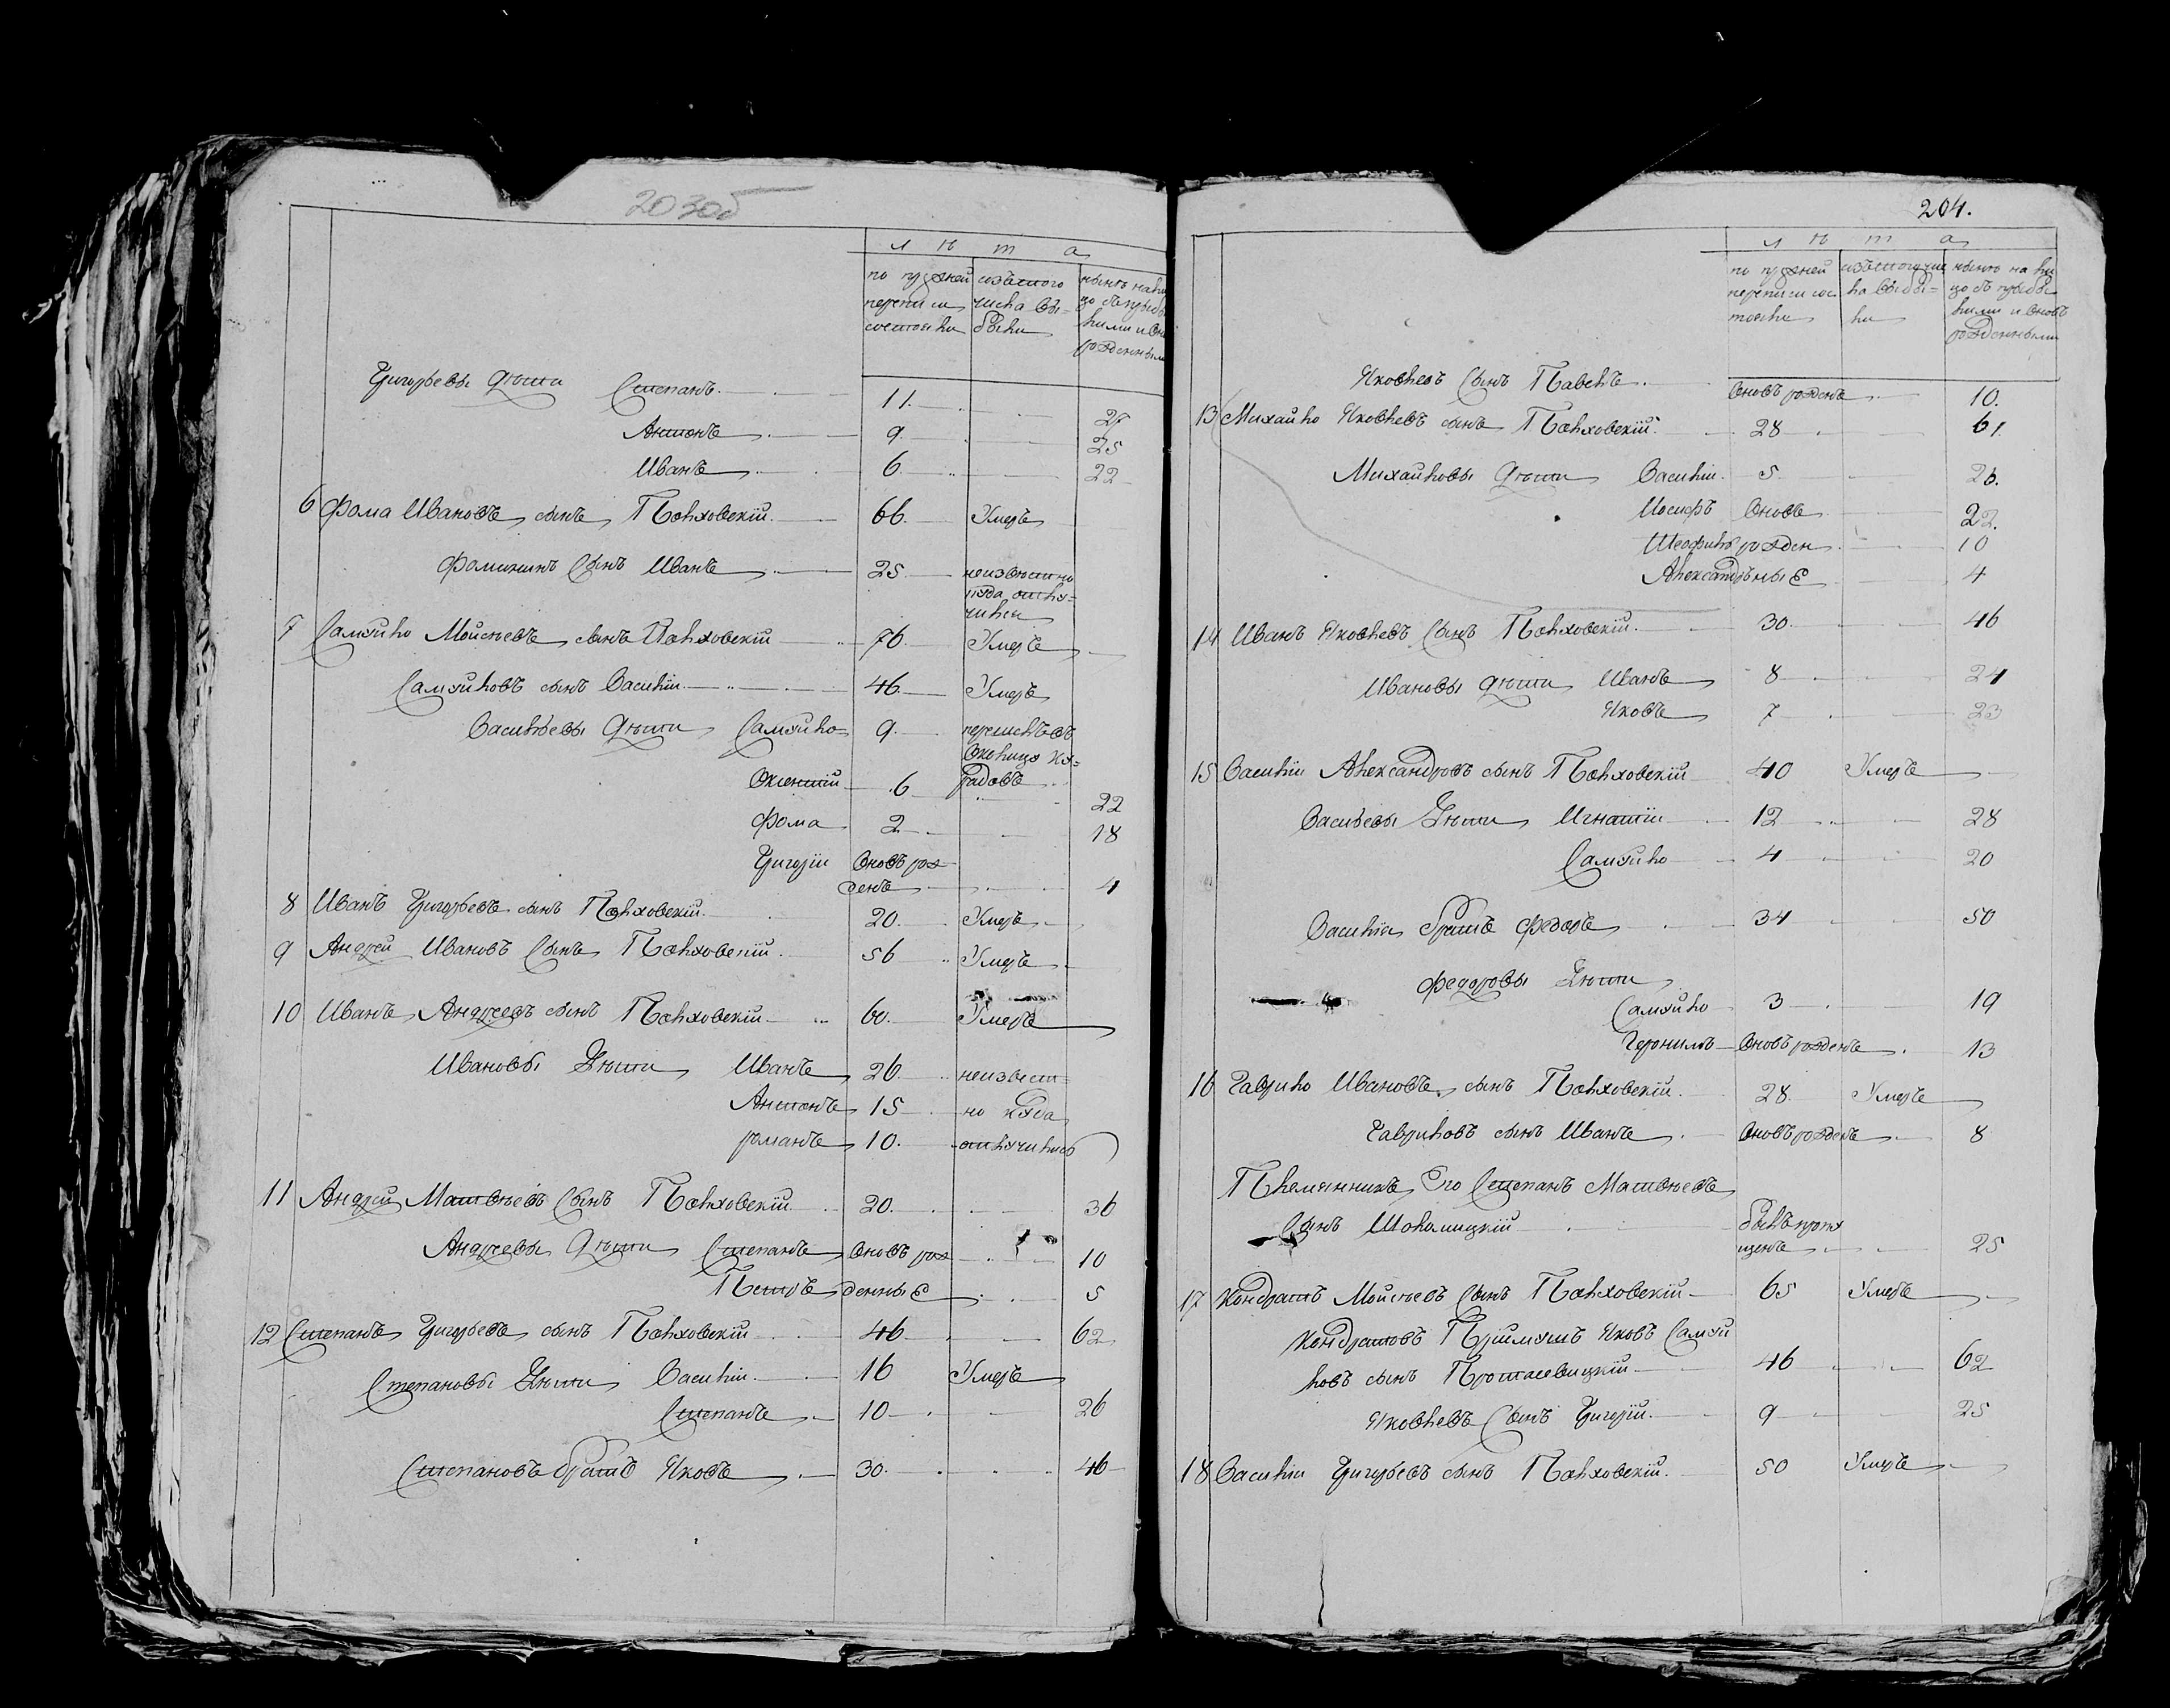 203об
лѣта
по прежней переписи состояли
изътого числа выбыли
нынѣ налицо съ прибылыми и вновь рожденными
Григорьевы дѣти Степанъ 11. 27
Антонъ 9. 25
Иванъ 6. 22
6 Фома Ивановъ сынъ Полховскій 66. Умеръ
Фоминъ Сынъ Иванъ 25 неизвѣстно
куда отлу=
чился
7 Самуйло Мойсѣевъ сынъ Полховскій 76. Умеръ
Самуйловъ сынъ Василій 46 Умеръ
Васильевы дѣти Самуйло 9. перешолъ въ
6
Фома 2 22
18
Григорій Вновь рож
денъ 4
8 Иванъ Григорьевъ сынъ Полховскій 20. Умеръ
9 Андрей Ивановъ Сынъ Полховскій 56 Умеръ
10 Иванъ Андреевъ сынъ Полховскій 60. Умеръ
Ивановы Дѣти Иванъ 26. неизвест=
Антонъ 15 но куда
романъ 10. отлучились
11 Андрей Матвѣевъ Сынъ Полховскій 20. 36
Андреевы Дѣти Степанъ Вновь рож 10
Петръ денные 5
12 Степанъ Григорьевъ сынъ Полховскій 46 62
Степановы Дѣти Василій 16 Умеръ
Степанъ 10 26
Степановъ братъ Яковъ 30. 46
204.
лѣта
по прежней переписи состояли
изътого числа выбыли
нынѣ на лицо съ прибылыми и вновь рожденными
Яковлевъ Сынъ Павелъ. Вновь рожденъ 10.
13 Михайло Яковлевъ сынъ Полховскій. 28 61.
Михайловы Дѣти Василій 5 26.
Иосифъ Вновь 22.
Теофилъ рожден 10
Александръ ные 4
14 Иванъ Яковлевъ Сынъ Полховскій. 30. 46
Ивановы дѣти Иванъ 8 24
Яковъ 7 23
15 Василій Александровъ сынъ Полховскій 40 Умеръ
Васильевы Дѣти Игнатій 12 28
Самуйло 4 20
Василія братъ Федоръ 34 50
Федоровы Дѣти
Самуйло 3 19
Вновь рожденъ 13
16 Гаврило Ивановъ сынъ Полховскій. 28. Умеръ
Гавриловъ сынъ Иванъ Вновь рожденъ 8
Племянникъ Его Степанъ Матвѣевъ
Сынъ былъ пропу
щенъ 25
17 Кондратъ Мойсѣевъ Сынъ Полховскій 65 Умеръ
Кондратовъ Пріймышъ Яковъ Самуй
ловъ сынъ Протасевицкій 46 62
Яковлевъ Сынъ Григорій. 9 25
18 Василій Григорьевъ сынъ Полховскій. 50 Умеръ